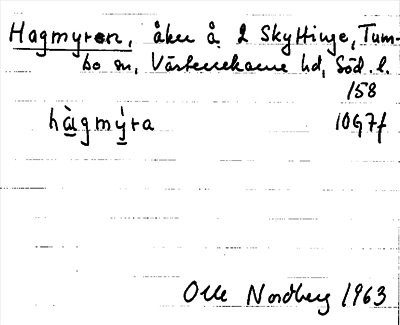 Hagmyren, åker å 2 Skyttinge, Tum-
bo sn, Västerrekarne hd, Söd. l.
158
hà̱gmỳ̱ra 10G7f
Olle Nordberg 1963